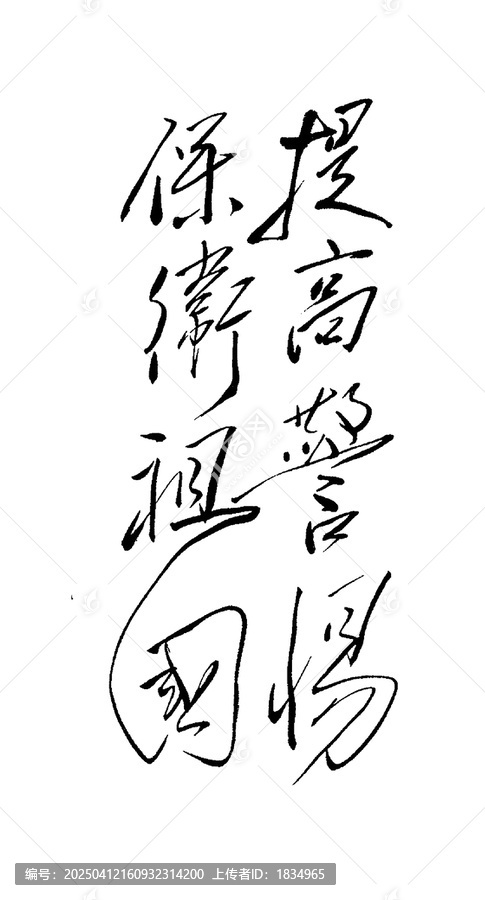 提高警惕
保衛祖國
编号：20250412160932314200 上传者ID：1834965